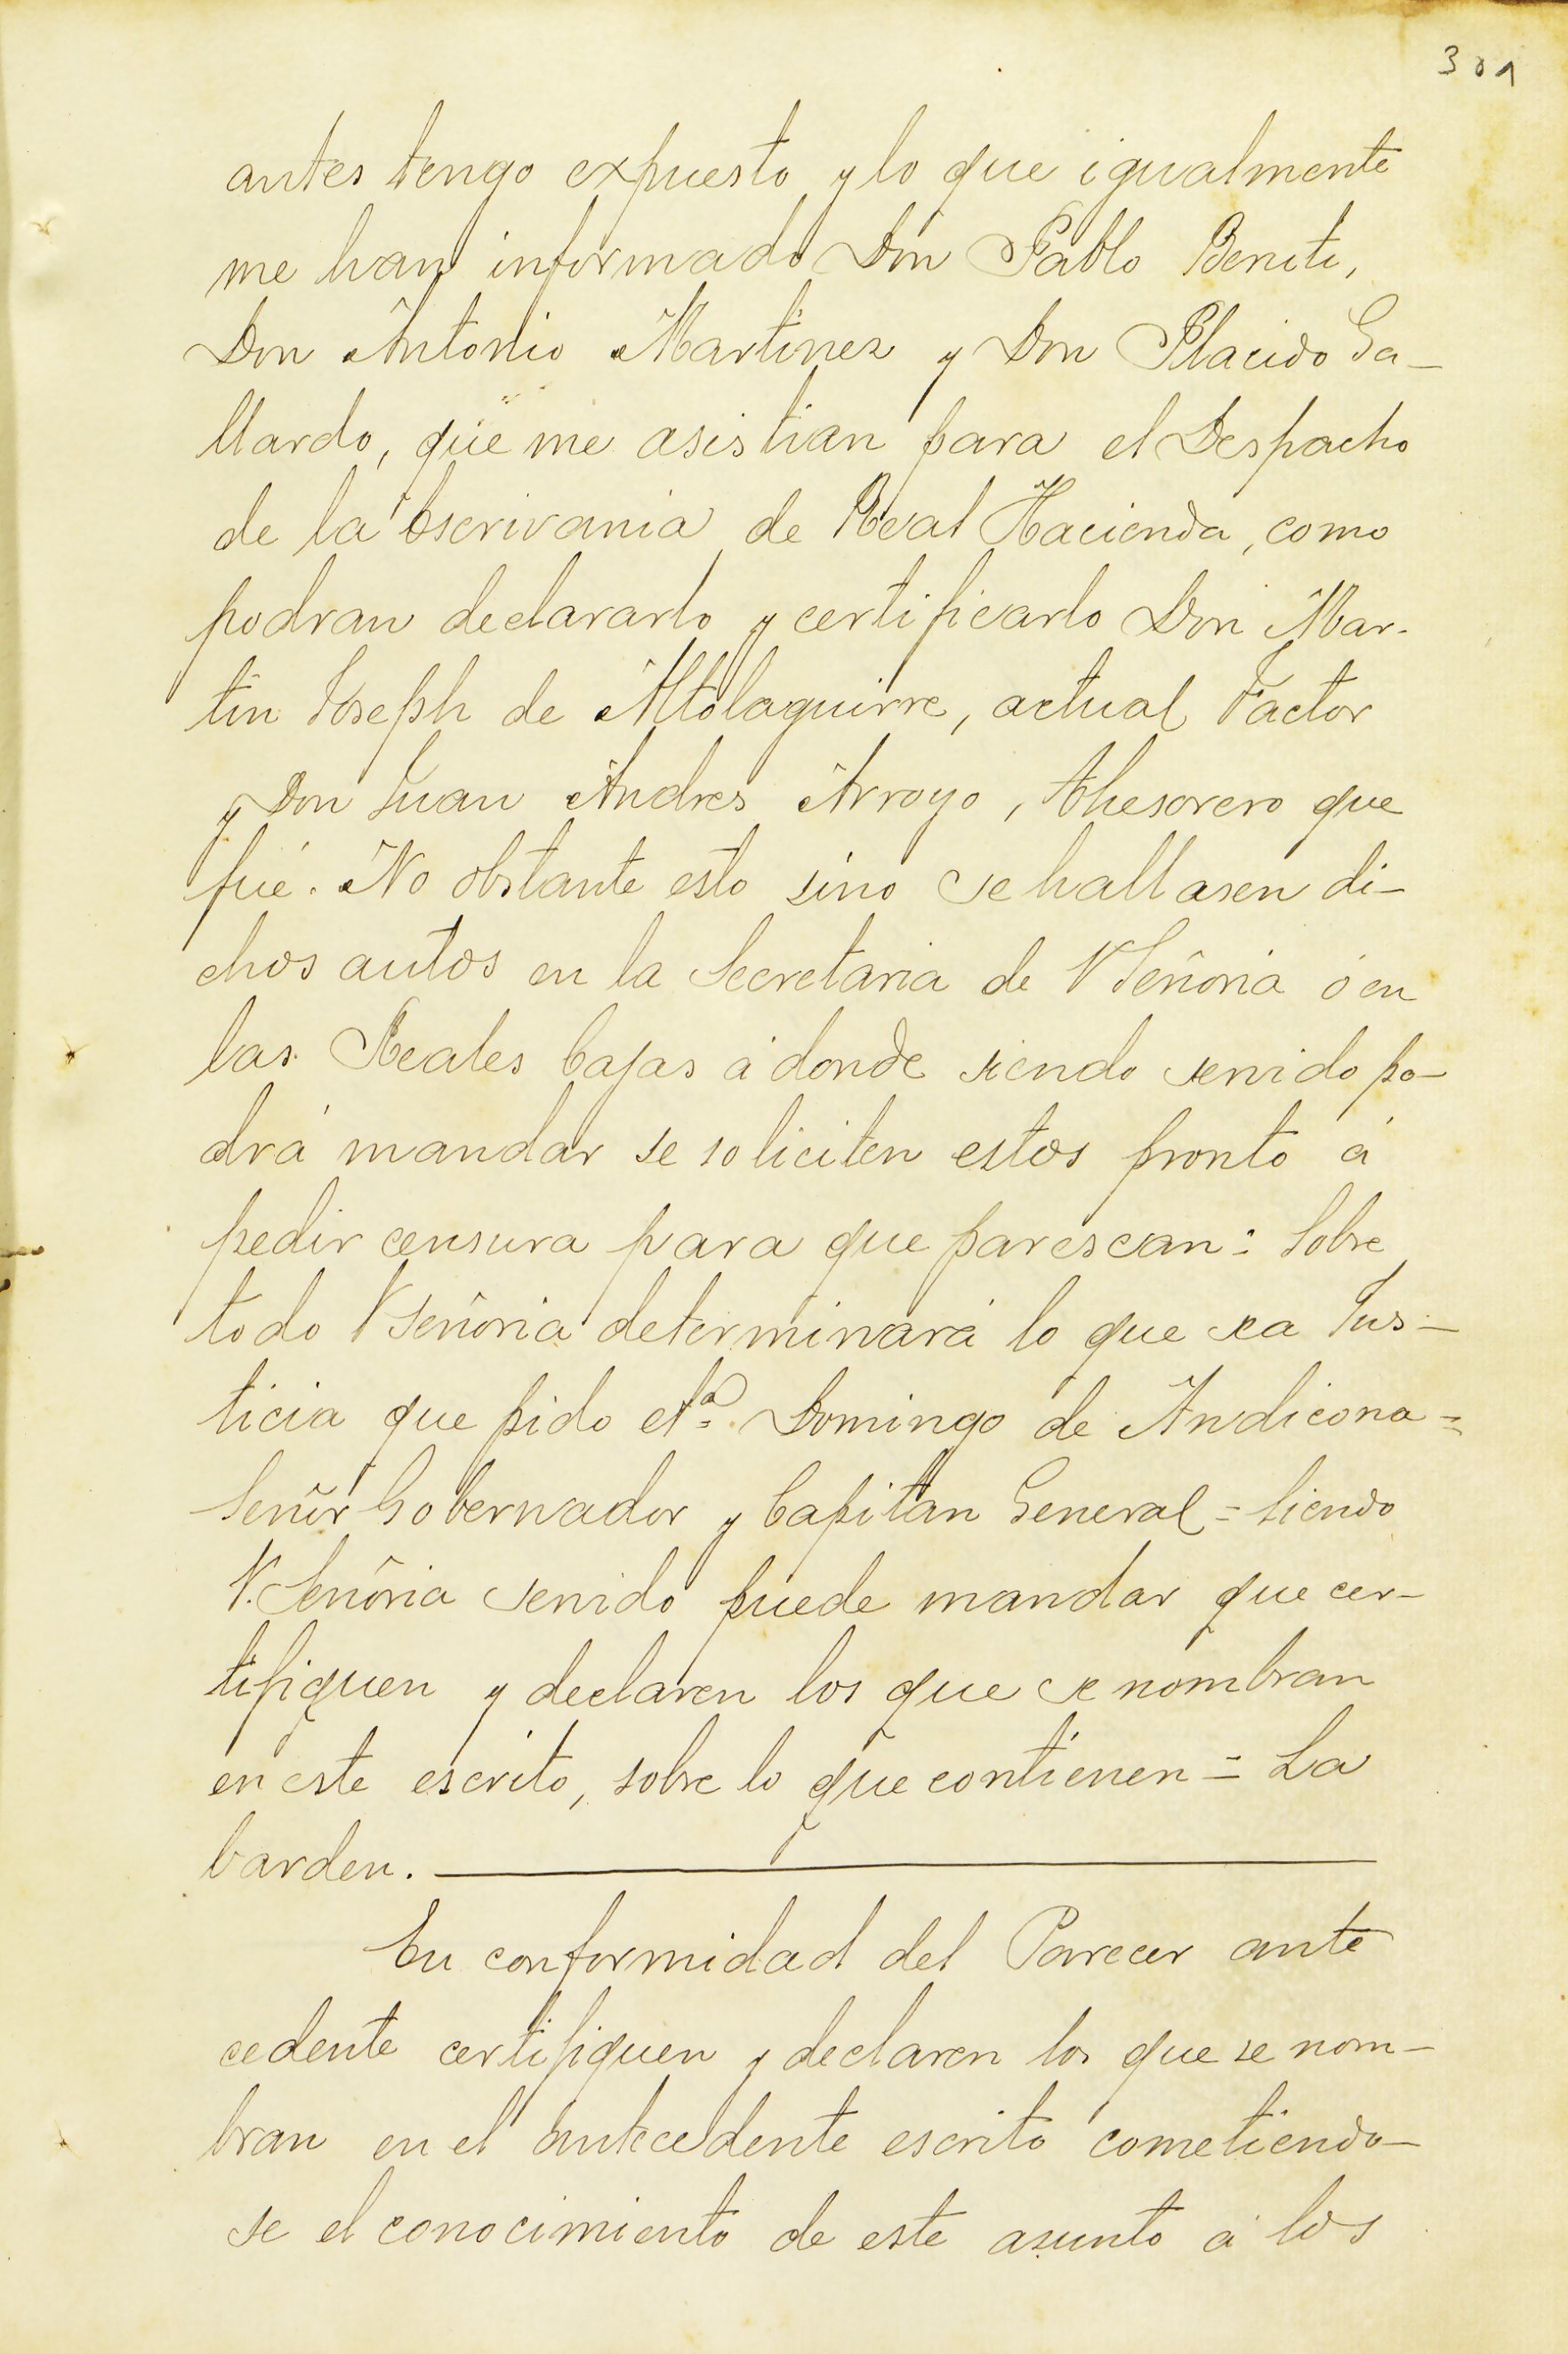 301
antes tengo expuesto y lo que igualmente
me han informado Don Pablo Beniti,
Don Antonio Martinez y Don Placido Ga-
llardo, que me asistian para el Despacho
de la Escrivania de Real Hacienda, como
podran declararlo y certificarlo Don Mar-
tin Joseph de Altolaguirre, actual Factor
y Don Juan Andres Arroyo, Thesorero que
fué. No obstante esto sino se hallasen di-
chos autos en la Secretaria de V Señoria ó en
las Reales Cajas á donde siendo servido po-
drá mandar se soliciten estos pronto á
pedir censura para que parescan: Sobre
todo V Señoria determinará lo que sea Jus-
ticia que pido etª= Domingo de Andicona=
Señor Gobernador y Capitan General= Siendo
V. Señoria servido puede mandar que cer-
tifiquen y declaren los que se nombran
en este escrito, sobre lo que contienen= La
barden.
En conformidad del Parecer ante
cedente certifiquen y declaren los que se nom-
bran en el antecedente escrito cometiendo-
se el conocimiento de este asunto á los